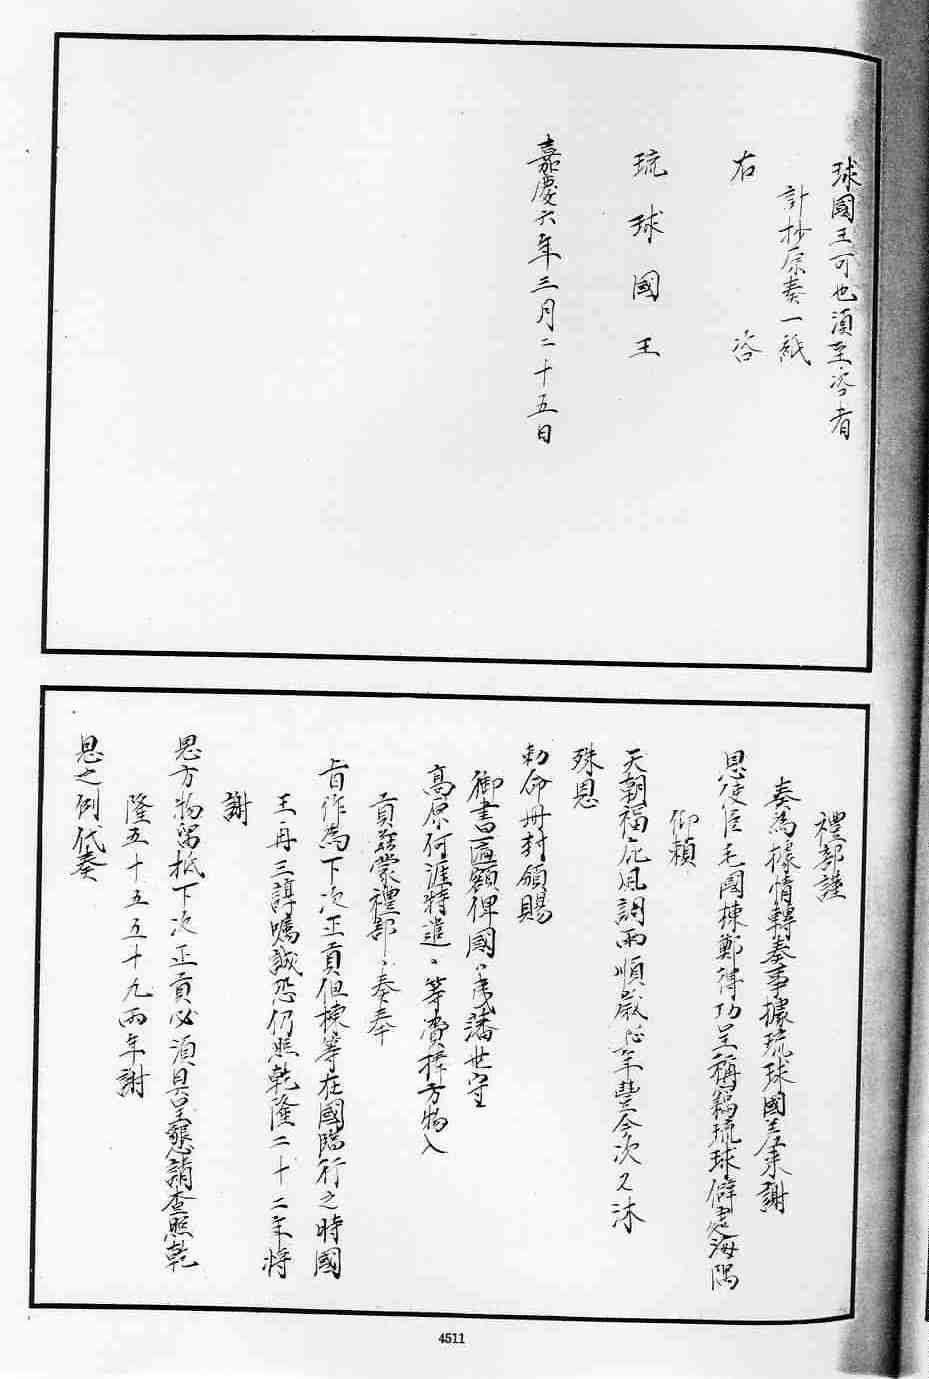 球國王可也須至咨者
計抄原奏一紙
右咨
琉球國王
嘉慶六年三月二十五日
禮部謹
奏為據情轉奏事據琉球國差來謝
恩使臣毛國棟鄭得功呈稱竊琉球僻處海隅
仰頼
天朝福庇風調雨順歲稔年豐今次又沐
殊恩
勅命冊封領賜
御書匾額俾國〻屏藩世守
高厚何涯特遣〻等賫捧方物入
貢茲蒙禮部〻奏奉
旨作為下次正貢但棟等在國臨行之時國
王再三諄囑誠恐仍照乾隆二十二年將
謝
恩方物留抵下次正貢必須具呈懇請查照乾
隆五十五五十九兩年謝
恩之例代奏
4511